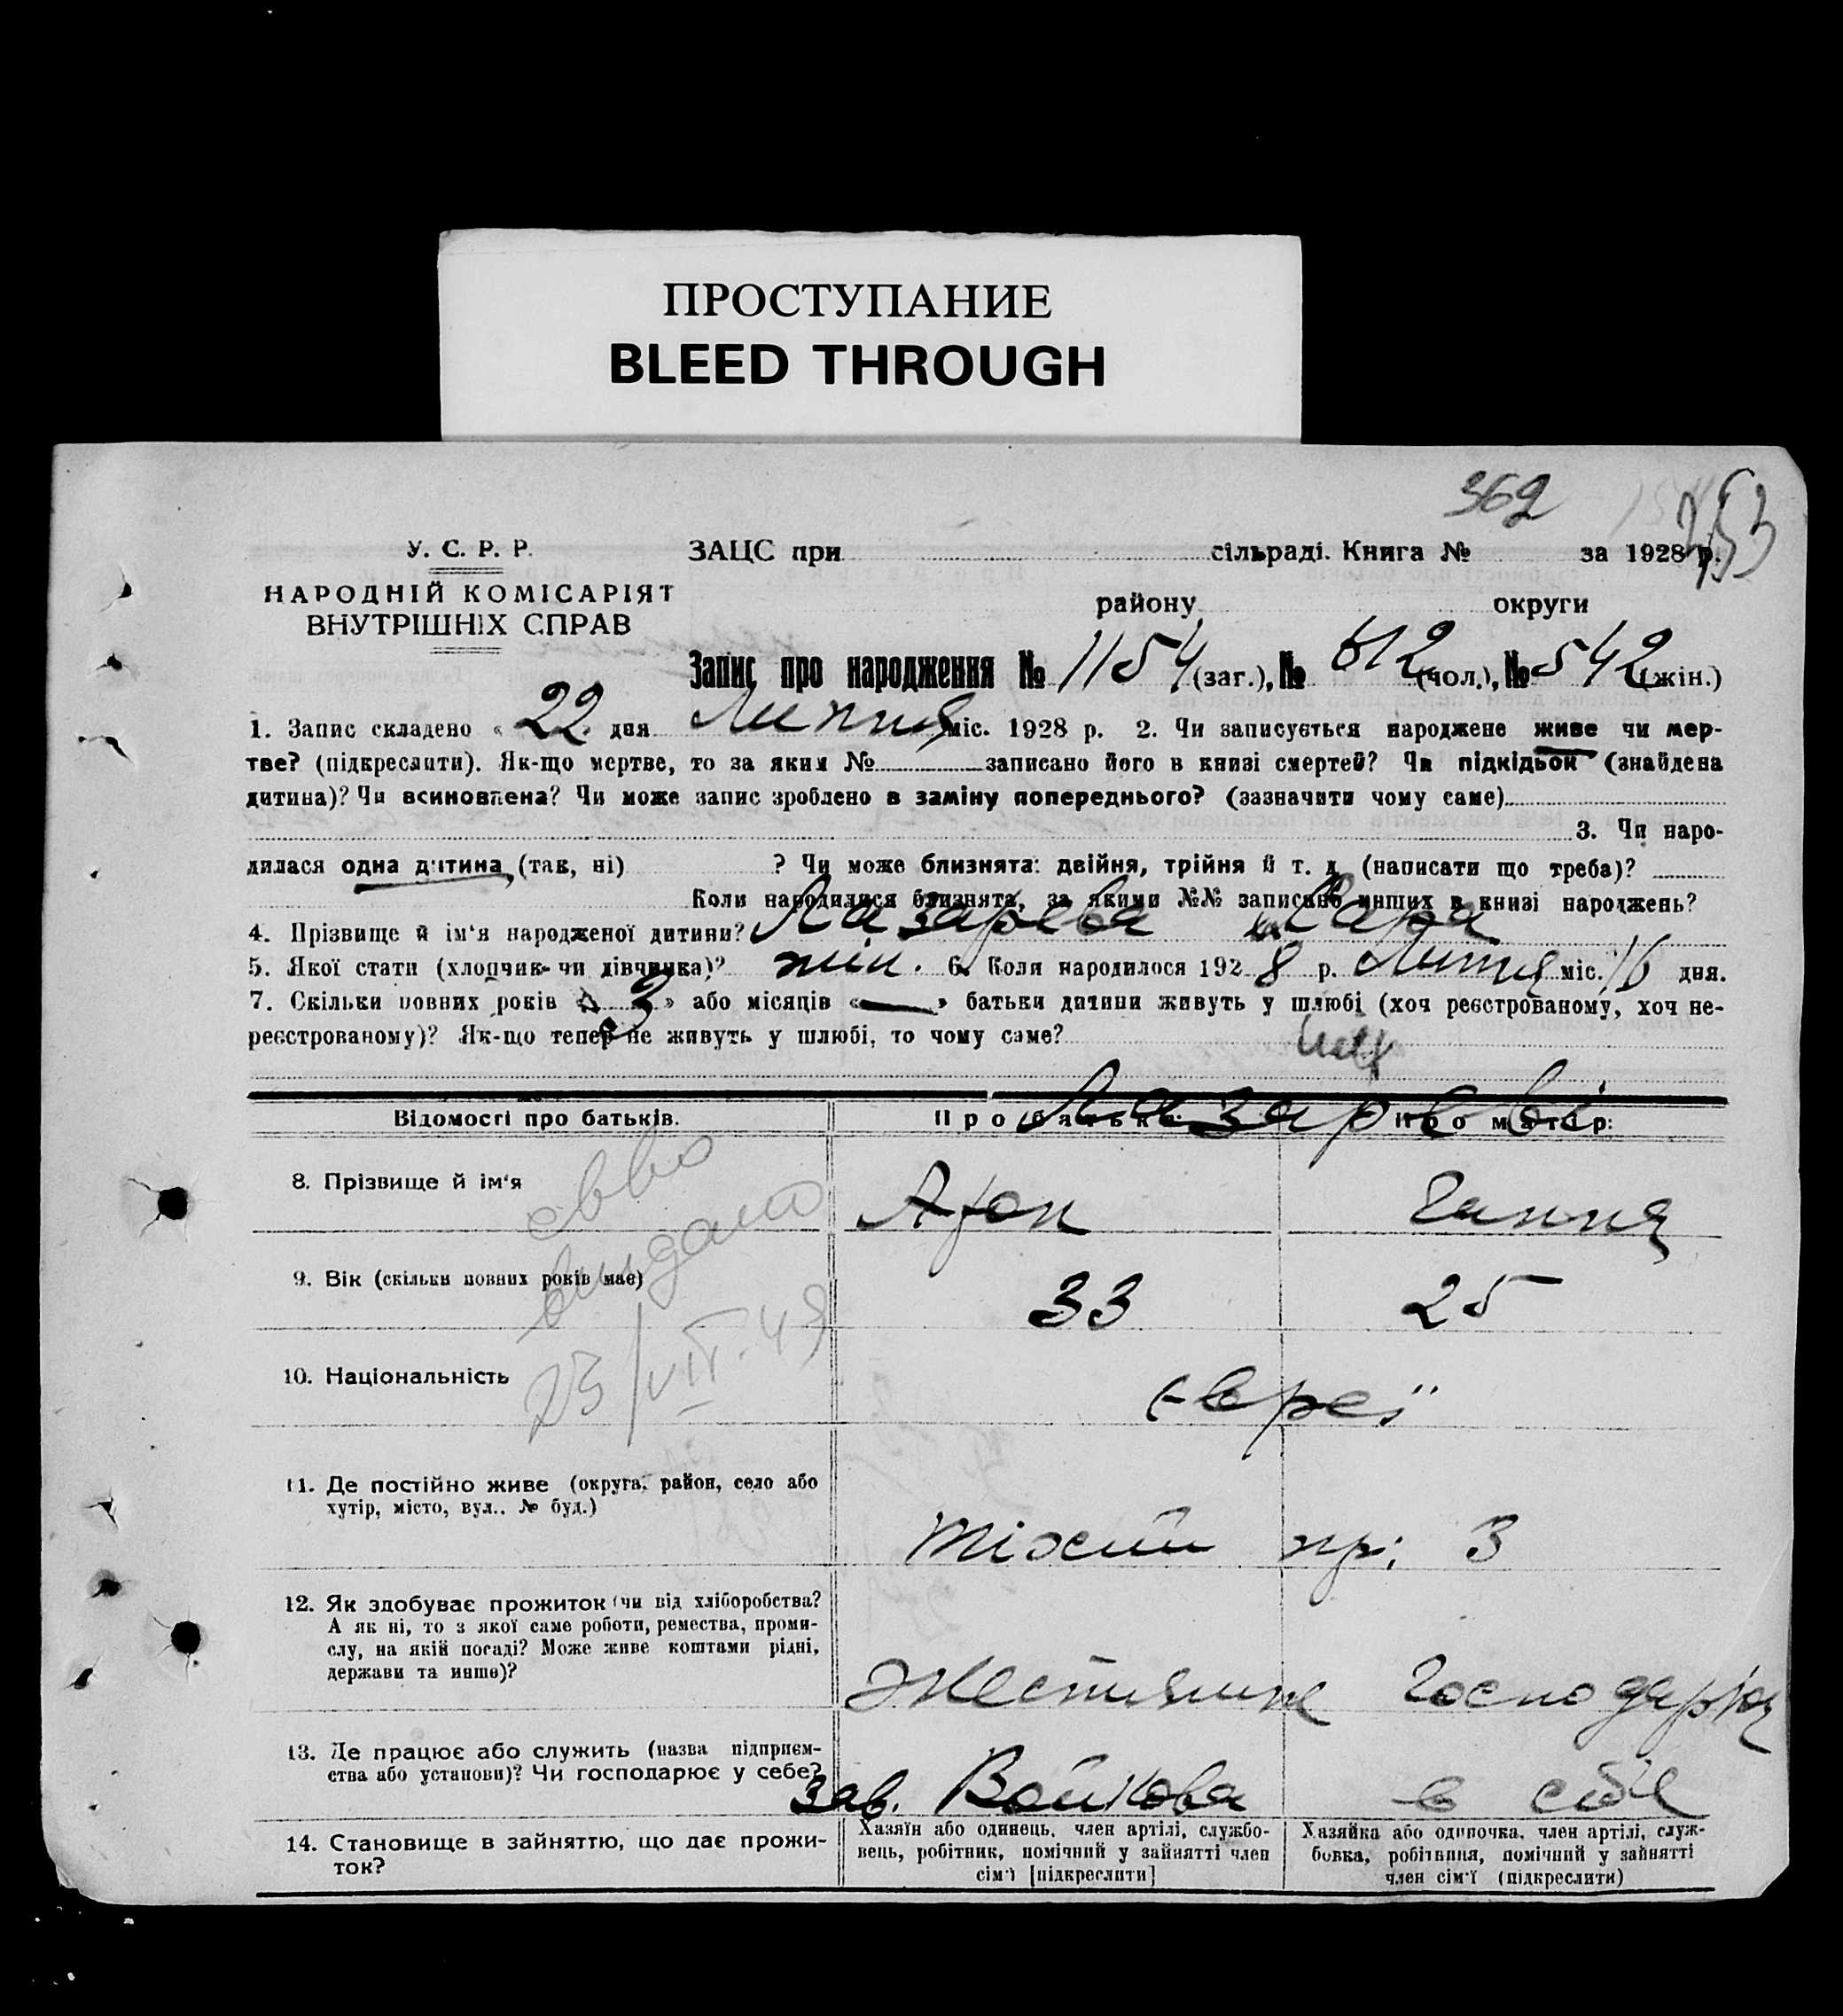 ПРОСТУПАНИЕ
BLEED THROUGH
362
153
У. С. Р. Р.
НАРОДНІЙ КОМІСАРІЯТ
ВНУТРІШНІХ СПРАВ
ЗАЦС при сільраді. Книга № за 1928 р.
району округи
Запис про народження № 1154 (заг.), № 612 (чол.), № 542 (жін.)
1. Запис складено « 22 » дня Липня міс. 1928 р. 2. Чи записується народжене живе чи мер-
тве? (підкреслити). Як-що мертве, то за яким № записано його в книзі смертей? Чи підкідьок (знайдена
дитина)? Чи всиновлена? Чи може запис зроблено в заміну попереднього? (зазначити чому саме)
3. Чи наро-
дилася одна дитина, (так, ні) ? Чи може близнята: двійня, трійня й т. д. (написати що треба)?
Коли народилися близнята, за якими №№ записано инших в книзі народжень?
4. Прізвище й ім'я народженої дитини? Лазарева
5. Якої стати (хлопчик чи дівчинка)? жін. 6. Коли народилося 1928 р. Липня міс. 16 дня.
7. Скільки повних років « 3 » або місяців « — » батьки дитини живуть у шлюбі (хоч реєстрованому, хоч не-
реєстрованому)? Як-що тепер не живуть у шлюбі, то чому саме?
Відомості про батьків. Про батька: Про матір:
Лазареві
8. Прізвище й ім'я
Ганна
9. Вік (скільки повних років має) 33 25
10. Національність Євреї
видано
23/VII-49
11. Де постійно живе (округа, район, село або
хутір, місто, вул., № буд.)
пр: 3
12. Як здобуває прожиток (чи від хліборобства?
А як ні, то з якої саме роботи, ремества, проми-
слу, на якій посаді? Може живе коштами рідні,
держави та инше)?
Жестяник Господарка
13. Де працює або служить (назва підприєм-
ства або установи)? Чи господарює у себе?
зав. Войкова в себе
14. Становище в зайняттю, що дає прожи-
ток?
Хазяїн або одинець, член артілі, службо-
вець, робітник, помічний у зайнятті член
сім'ї [підкреслити]
Хазяйка або одиночка, член артілі, служ-
бовка, робітниця, помічний у зайнятті
член сім'ї (підкреслити)